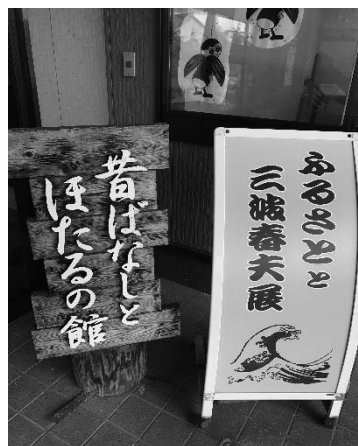 昔ばなしと
ほたるの館
ふるさとと
三波春夫展